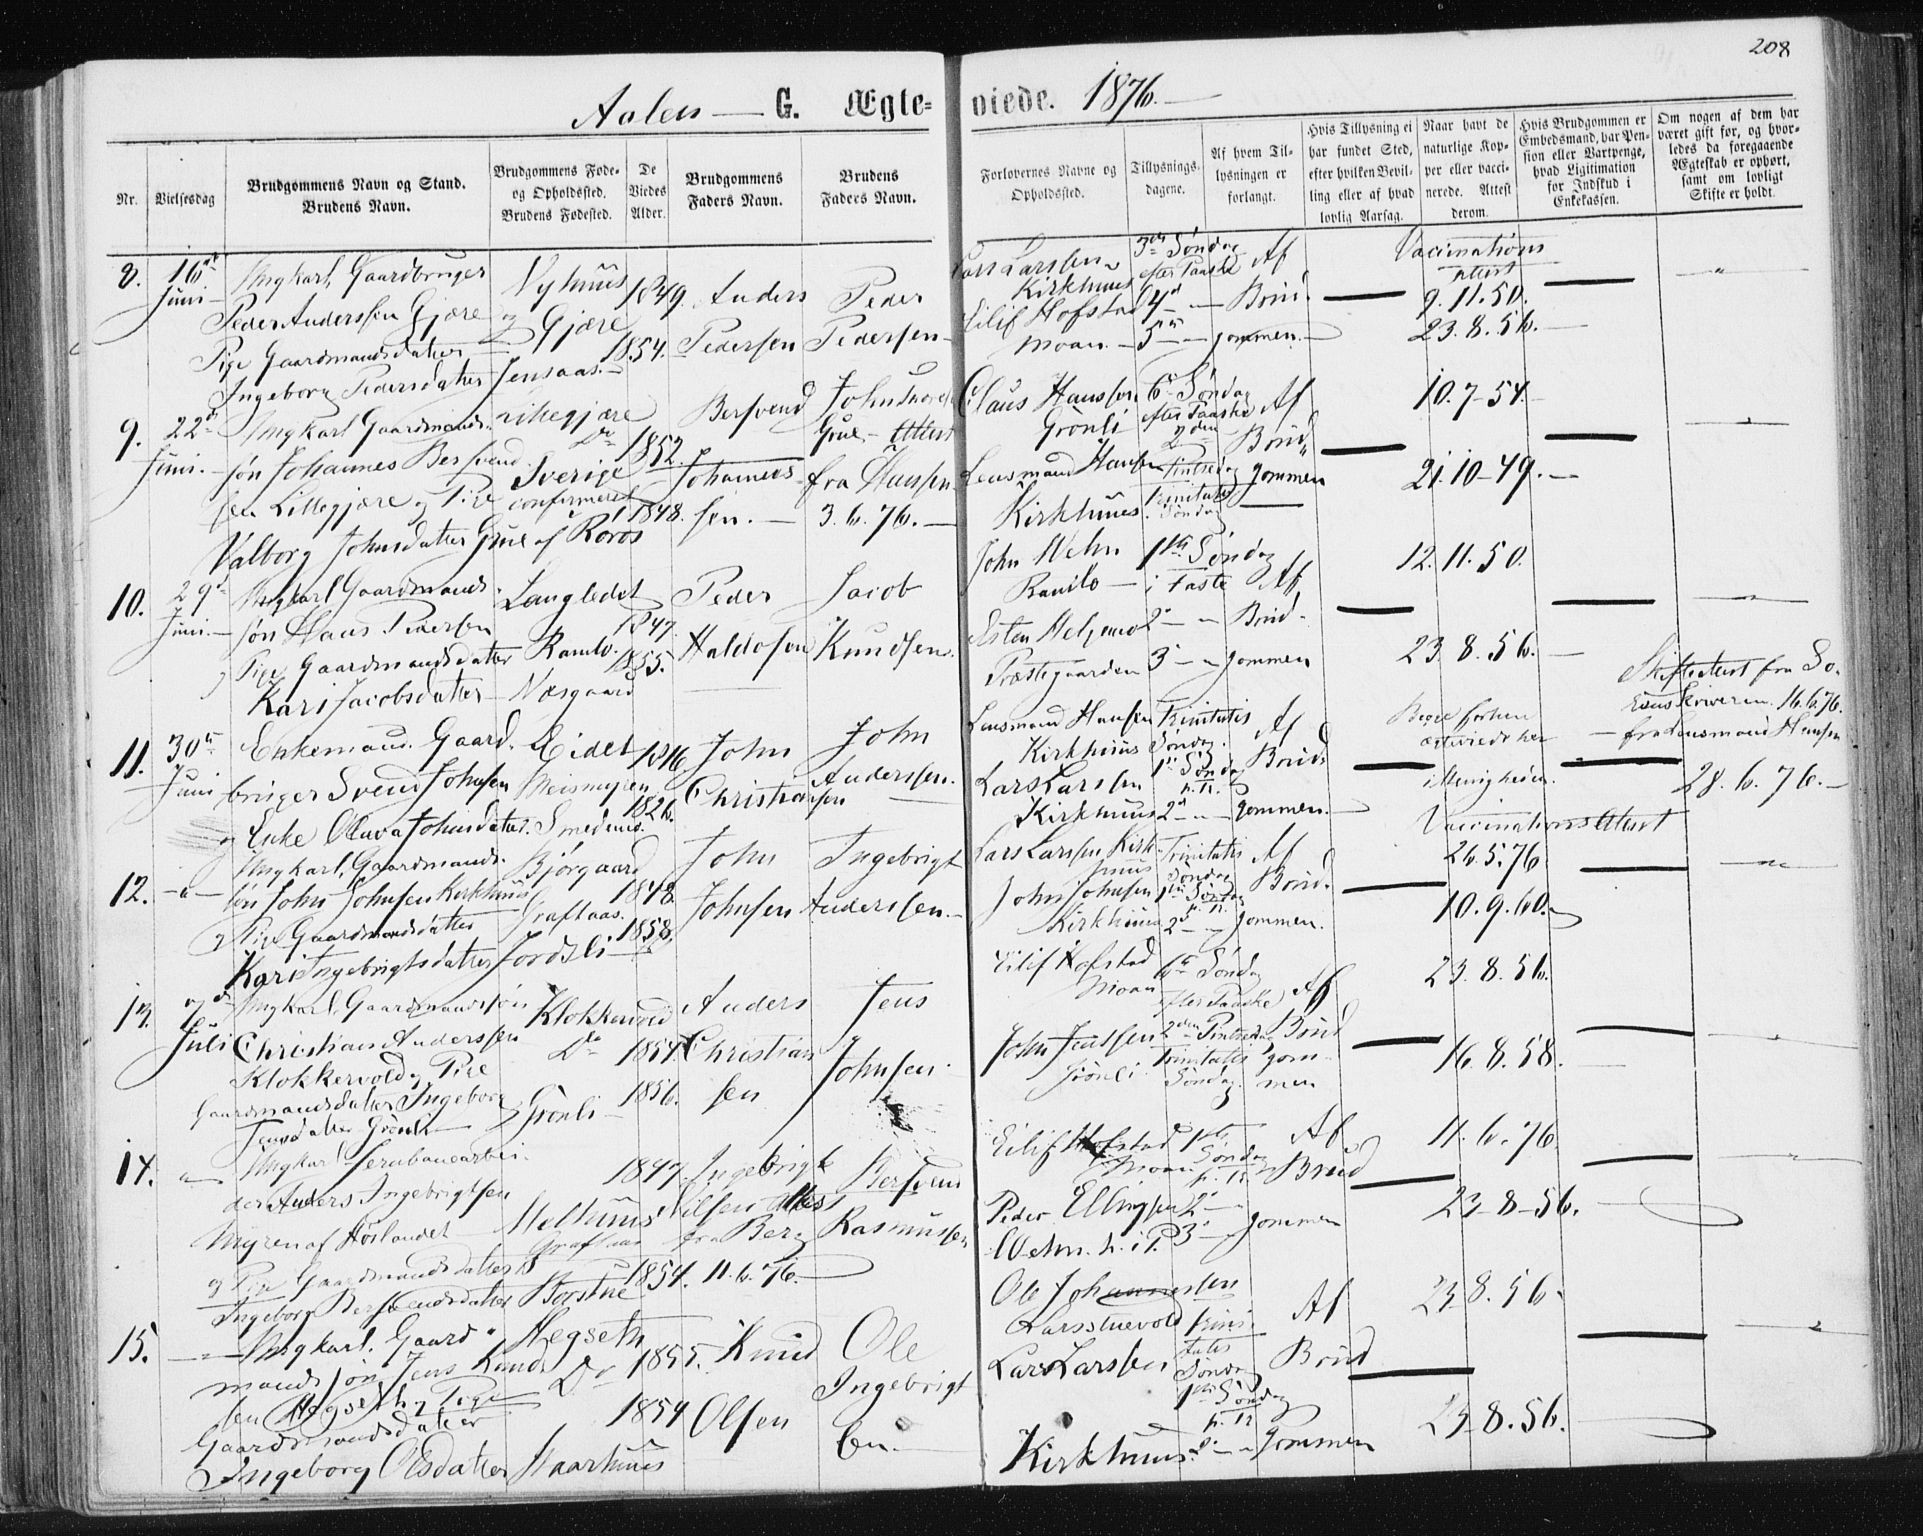 208
Aalen — G. Ægte- viede. 1876.
Nr.
Vielsesdag
Brudgommens Navn og Stand.
Brudens Navn.
Brudgommens Føde-
og Opholdssted.
Brudens Fødested.
De
Viedes
Alder.
Brudgommens
Faders Navn.
Brudens
Faders Navn.
Forlovernes Navne og
Opholdssted.
Tillysnings-
dagene.
Af hvem Til-
lysningen er
forlangt.
Hvis Tillysning ei
har fundet Sted,
efter hvilken Bevil-
ling eller af hvad
lovlig Aarsag.
Naar havt de
naturlige Kop-
per eller vacci-
nerede. Attest
derom.
Hvis Brudgommen er
Embedsmand, har Pen-
sion eller Vartpenge,
hvad Ligitimation
for Indskud i
Enkekassen.
Om nogen af dem har
været gift før, og hvor-
ledes da foregaaende
Ægteskab er ophørt,
samt om lovligt
Skifte er holdt.
8.
16de
Juni
Ungkarl, Gaardbruger
Peder Anderssen Gjære
Pige Gaardmandsdatter
Ingeborg Pedersdatter
Nyhuus
og Gjære
Jensaas.
1849.
1854.
Anders
Pedersen
Peder
Pedersen
Lars Larssen
Kirkhuus
Eilif Hofstad
Moan.
3die Søndag
efter Paaske
4d
5te
Af
Brud-
gommen.
Vaccinations
attest
9. 11. 50.
23. 8. 56.
9.
22d
Juni.
Ungkarl Gaardmands-
søn Johannes Bersvend
sen Lillegjære og Pige
Valborg Johnsdatter Grue
Lillegjære
Do
Sverige
confirmeret
af Røros
1852.
1848.
Bersvend
Johannes
sen.
John
Grue. Attest
fra Hansen
3. 6. 76.
Claus Hanssen
Grönli
Lensmand Hansen
Kirkhuus.
6te Søndag
efter Paaske
2den
Pintsedag
Trinitatis
Søndag
Af
Brud
gommen
10. 7- 54
21. 10- 49.
10.
29d
Juni.
Ungkarl Gaardmands
søn Hans Pedersen
og Pige Gaardmandsdatter
Kari Jacobsdatter
Langledet
Ramlo.
Næsgaard
1847.
1855.
Peder
Haldosen
Jacob
Knudsen.
John Wehn
Ramlo
Esten
Præstegaarden
1ste Søndag
i Faste
2
3
Af
Brud-
gommen
12. 11. 50.
23. 8. 56.
11.
30te
Juni
Enkemand. Gaard-
bruger Svend Johnsen
og Enke Oluva Johnsdatter.
Eidet
Smedmo.
1816
1826.
John
Christiansen
John
Anderssen.
Lensmand Hansen
Kirkhuus
Lars Larssen
Kirkhuus
Trinitatis
Søndag.
1ste Søndag
p. Tr.
2d
Af
Brud-
gommen.
Begge forhen
ægteviede her
i Menigheden.
Skifteattest fra So-
renskriveren. 16.6.76.
— fra Lensmand Hansen
28. 6. 76.
12.
Ungkarl, Gaardmands-
søn John Johnsen Kirkhuus
og Pige Gaardmandsdatter
Kari Ingebrigtsdatter
Bjørgaard
Graftaas.
Jordsli
1848.
1858.
John
Johnsen
Ingebrigt
Anderssen.
Lars Larssen Kirk-
huus
John Johnsen
Kirkhuus
Trinitatis
Søndag
1ste Søndag
p. Tr.
2d
Af
Brud-
gommen.
Vaccinations Attest
26. 5. 76
10. 9. 60.
13.
7d
Juli
Ungkarl, Gaardmandssøn
Christian Anderssen
Klokkervold og Pige
Gaardmandsdatter Ingeborg
Jensdatter Grönli
Klokkervold
Do
Grönli
1854.
1856.
Anders
Christian
sen
Jens
Johnsen.
Eilif Hofstad
Moan
John Jenssen
Grönli
6te Søndag
efter Paaske
2den Pintsedag
Trinitatis
Søndag.
Af
Brud
gom-
men
23. 8. 56.
16. 8. 58.
14.
Ungkarl Jernbanearbei-
der Anders Ingebrigtsen
Myren af Høilandet
og Pige Gaardmandsdatter
Ingeborg Bersvendsdatter
Melhuus
Graftaas
Borstue
1847.
1854.
Ingebrigt
Attest
fra Berg
11. 6. 76.
Bersvend
Rasmussen
Eilif Hofstad
Moan
Peder Ellingsen
Wehn. h. i P.
1ste
Søndag
p. Tr
2
3
Af
Brud
gommen
11. 6. 76.
23- 8- 56.
15.
Ungkarl. Gaard-
mandssøn Jens Knud-
sen Hegseth og Pige
Gaardmandsdatter
Ingeborg Olsdatter
Hegseth
Do
Haarhuus
1855.
1854
Knud
Olsen
Ole
Ingebrigt
sen.
Ole Johannessen
Larsstuevold
Lars Larssen
Kirkhuus.
Trini-
tatis
Søndag
1ste Søndag
p. Tr
2
Af
Brud
gommen
23. 8. 56.
23- 8. 56.